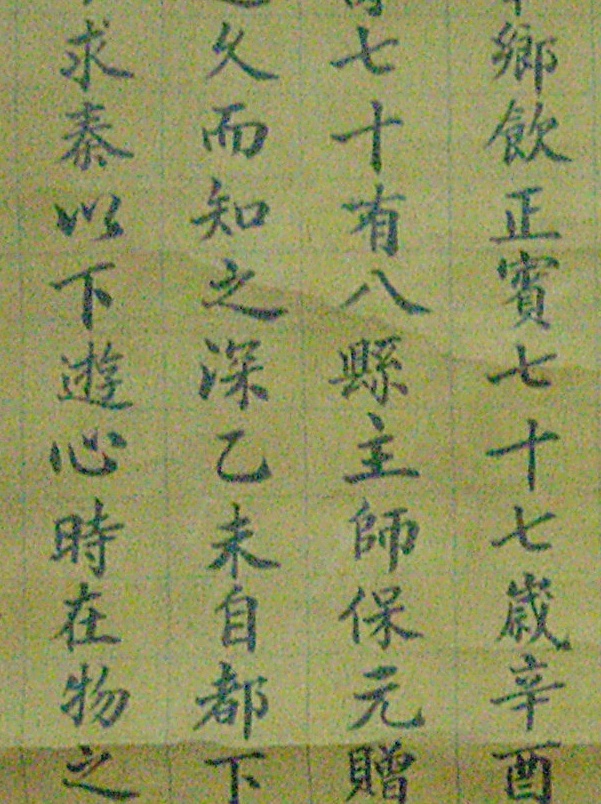 鄉飲正賓七十七歲辛酉
七十有八縣主師保元贈
久而知之深乙未自都下
求泰以下遊心時在物之